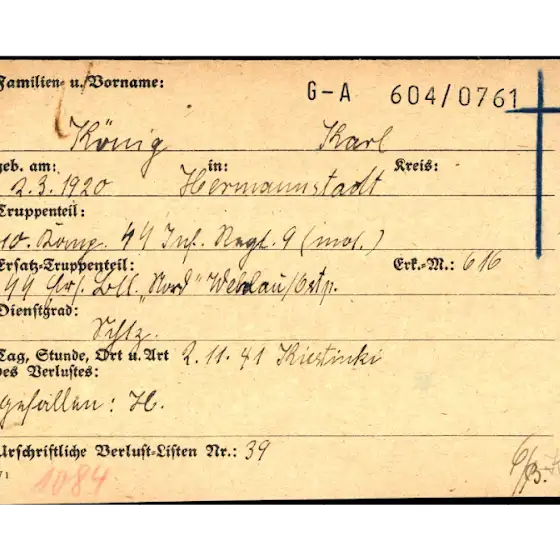 Familien- u. Vorname:
G-A 604/0761
König Karl
geb. am: in: Kreis:
2.3.1920 Hermannstadt
Truppenteil:
10. Komp. 44 Inf. Regt. 9 (mot.)
Ersatz-Truppenteil: Erk.-M.: 616
44 Ers. Btl. „Nord" Wehlau/Ostp.
Dienstgrad:
Schtz.
Tag, Stunde, Ort u. Art 2.11.41 Kiestinki
des Verlustes:
gefallen: H.
Urschriftliche Verlust-Listen Nr.: 39
1084